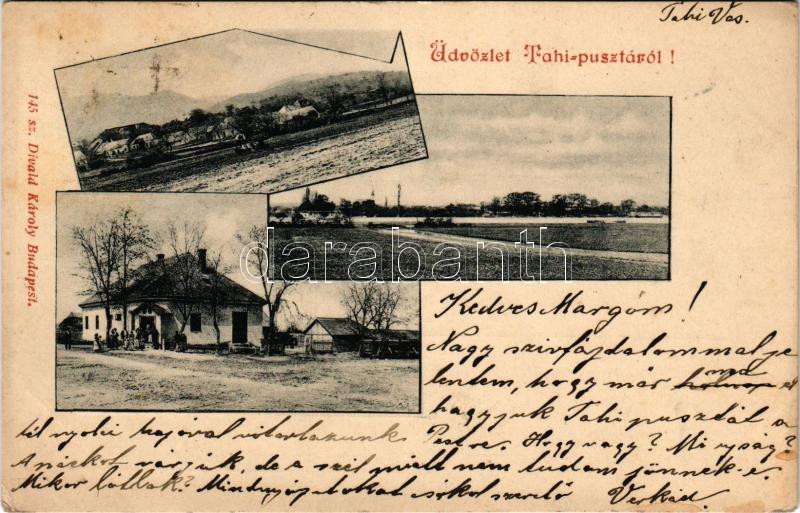 Tahi Vas.
Üdvözlet Tahi-pusztáról!
145 sz. Divald Károly Budapest.
darabanth
Kedves Margóm!
Nagy szivfájdalommal je
lentem, hogy már holnap ma el
hagyjuk Tahi pusztát a
fél nyolci hajóval vitorlázunk Pestre. Hogy vagy? Mi ujság?
A náckot várjuk, de a szél miatt nem tudom jönnek-e.
Mikor látlak? Mindnyájatokat csókol szerető